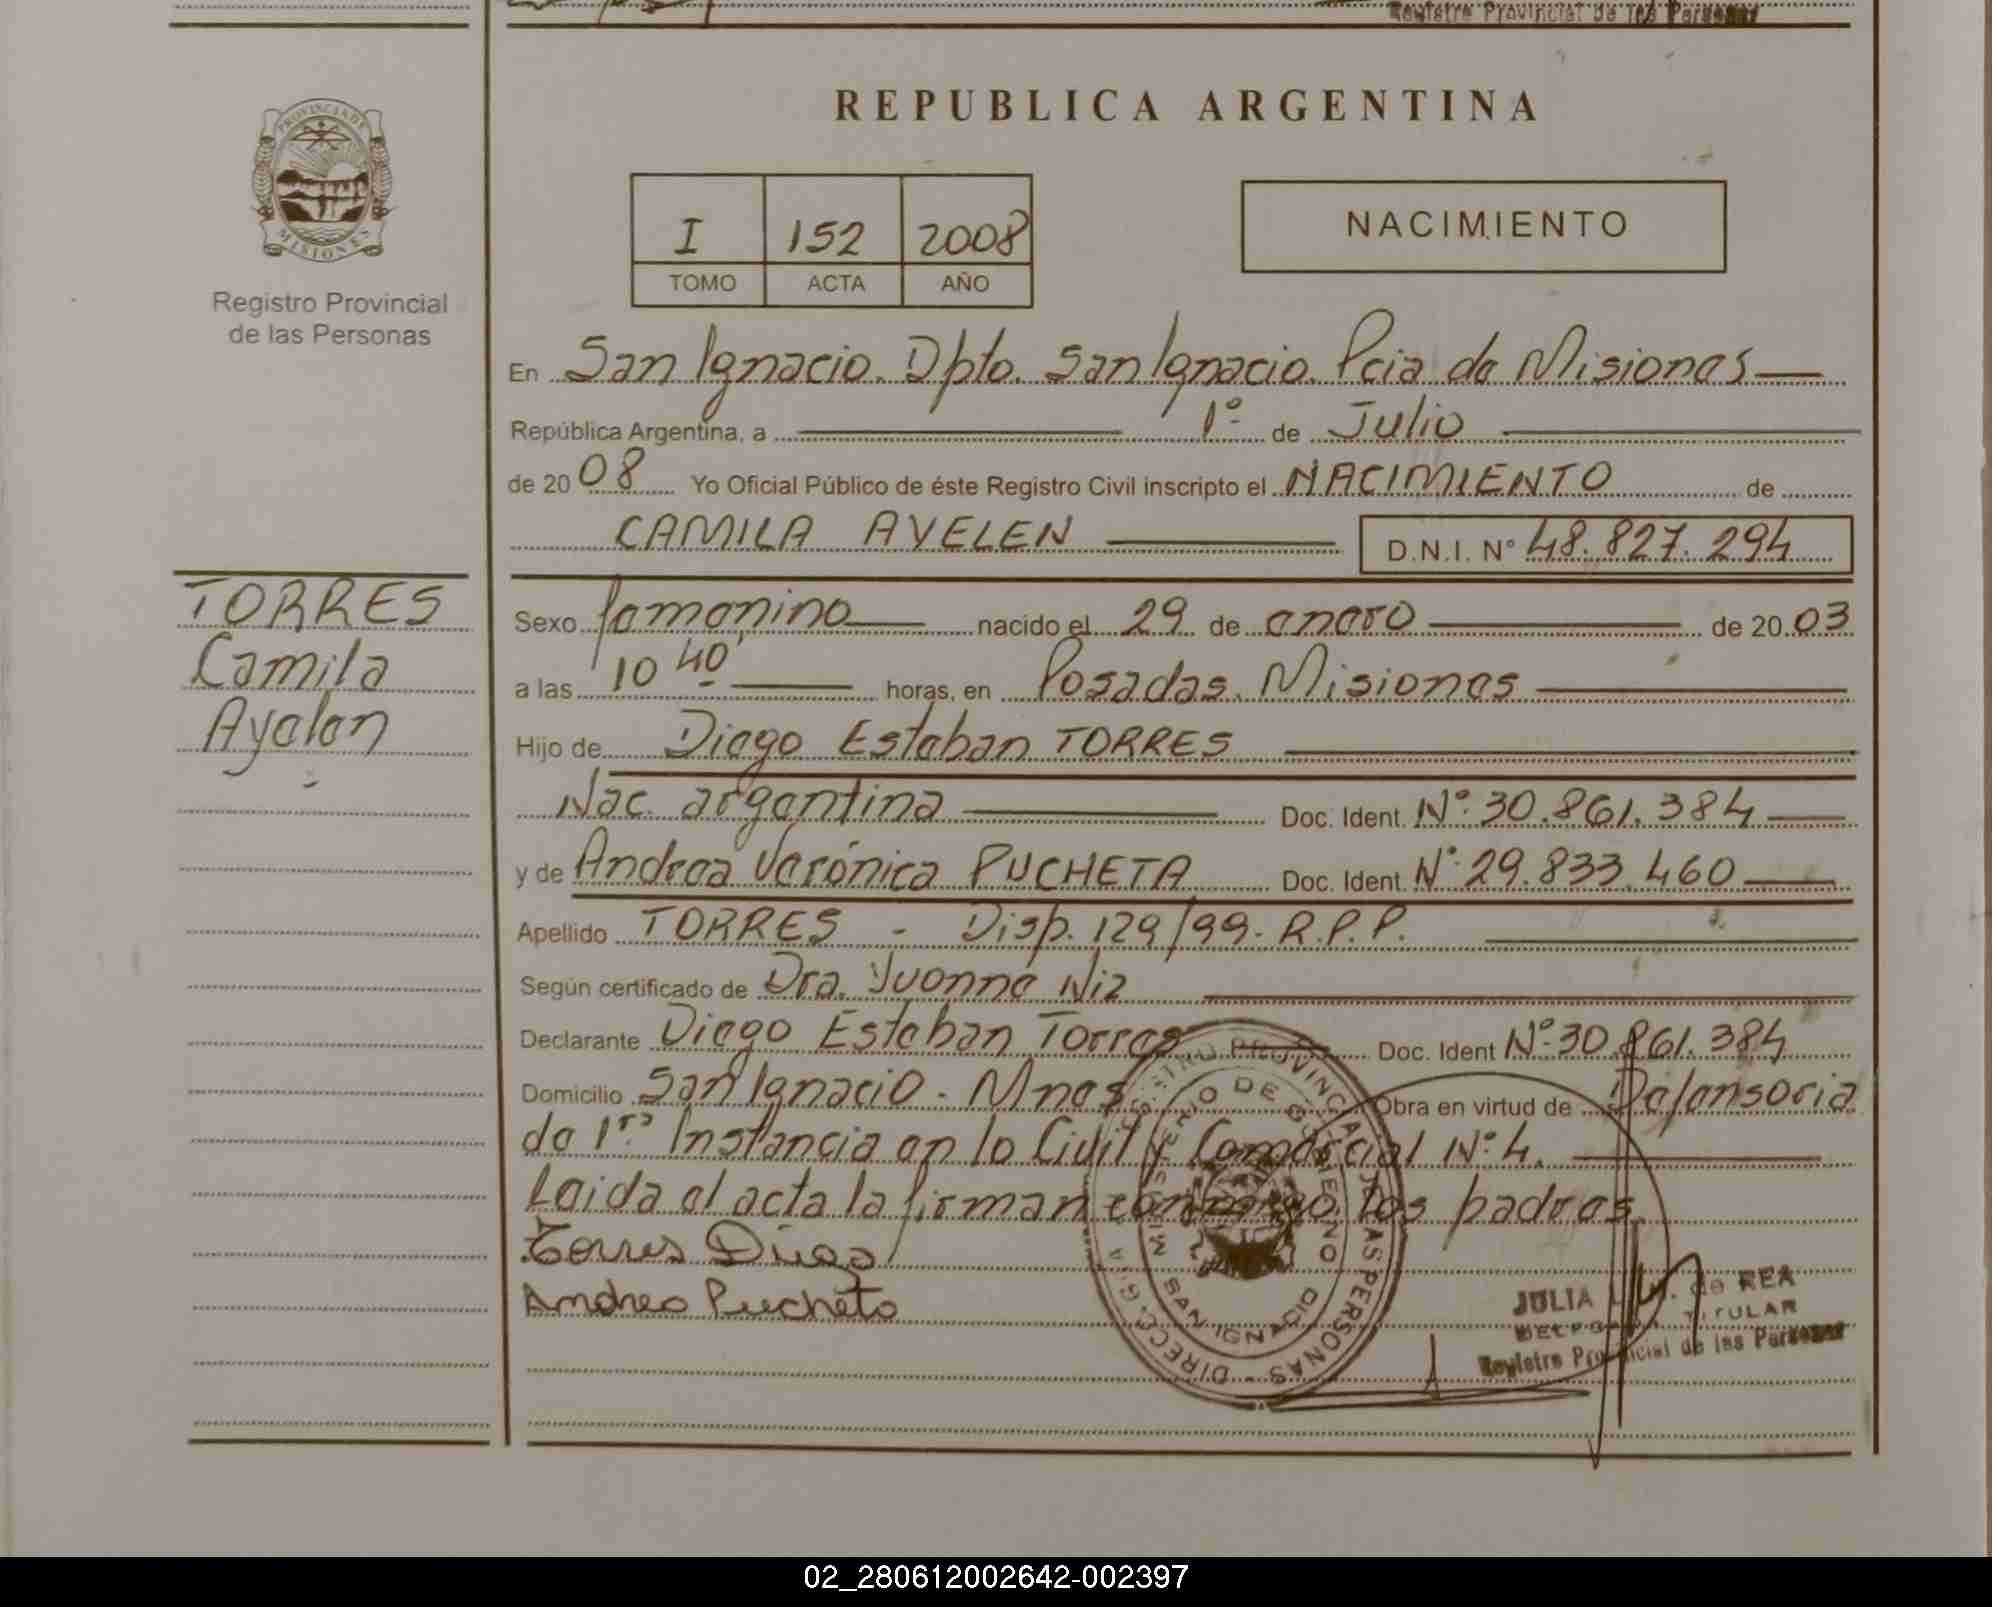 Registro Provincial de las Personas
REPUBLICA ARGENTINA
PROVINCIA DE
MISIONES
Registro Provincial
de las Personas
I 152 2008
TOMO ACTA AÑO
NACIMIENTO
En San Ignacio. Dpto. San Ignacio. Pcia de Misiones
República Argentina, a 1º de Julio
de 20 08 Yo Oficial Público de éste Registro Civil inscripto el NACIMIENTO de
CAMILA AYELEN D.N.I. Nº 48.827.294
TORRES
Camila
Ayelen
Sexo femenino nacido el 29 de enero de 20 03
a las 10 40' horas, en Posadas. Misiones
Hijo de Diego Esteban TORRES
Nac. argentina Doc. Ident. Nº. 30.861.384
y de Andrea Verónica PUCHETA Doc. Ident. Nº. 29.833.460
Apellido TORRES - Disp. 129/99. R.P.P.
Según certificado de Dra. Yvonne Niz
Declarante Diego Esteban Torres Doc. Ident Nº. 30.861.384
Domicilio San Ignacio - Mnes Obra en virtud de Defensoria
de 1ra Instancia en lo Civil y Comercial Nº. 4.
Leida el acta la firman conmigo los padres.
Torres Diego
Andrea Pucheta
DIRECC. GRAL. REGISTRO PROVINCIAL DE LAS PERSONAS
MINISTERIO DE GOBIERNO
SAN IGNACIO
JULIA de REA
TITULAR
Registro Provincial de las Personas
02_280612002642-002397